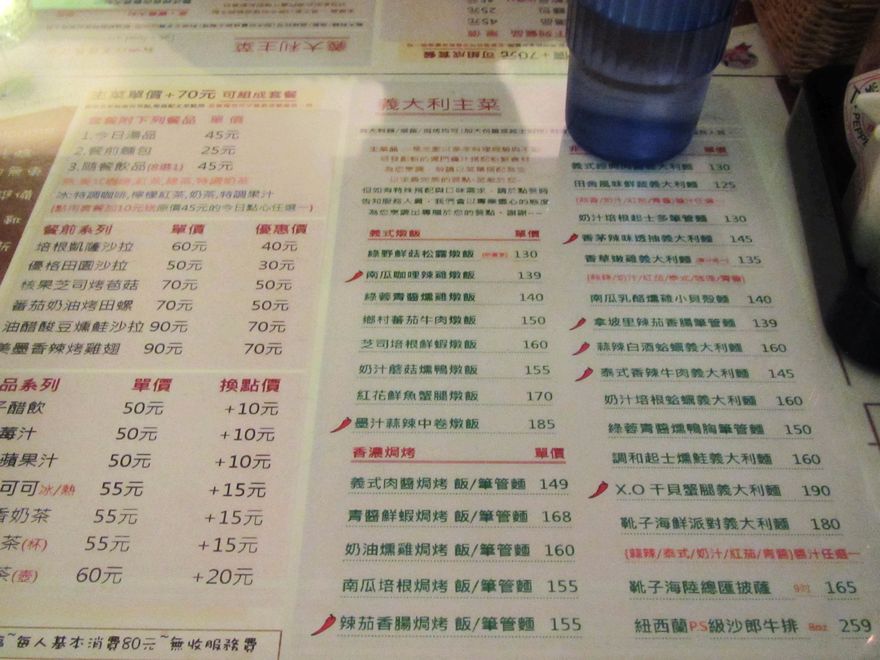 主菜單價+70元 可組成套餐
套餐附下列餐品 單價
1.今日湯品 45元
2.餐前麵包 25元
3.隨餐飲品 45元
冰:特調咖啡,檸檬紅茶,奶茶,特調果汁
餐前系列 單價 優惠價
培根凱薩沙拉 60元 40元
優格田園沙拉 50元 30元
核果芝司烤苞菇 70元 50元
蕃茄奶油烤田螺 70元 50元
油醋酸豆燻鮭沙拉 90元 70元
美墨香辣烤雞翅 90元 70元
品系列 單價 換點價
子醋飲 50元 +10元
莓汁 50元 +10元
蘋果汁 50元 +10元
可可冰/熱 55元 +15元
香奶茶 55元 +15元
茶(杯) 55元 +15元
茶(壺) 60元 +20元
~每人基本消費80元~無收服務費
義大利主菜
但如有特殊搭配與口味需求,請於點餐時
告知服務人員,我們會以專業盡心的態度
為您烹調出專屬於您的餐點,謝謝---
義式燉飯 單價
綠野鮮菇松露燉飯 130
南瓜咖哩辣雞燉飯 139
綠蓉青醬燻雞燉飯 140
鄉村蕃茄牛肉燉飯 150
芝司培根鮮蝦燉飯 160
奶汁蘑菇燻鴨燉飯 155
紅花鮮魚蟹腿燉飯 170
墨汁蒜辣中卷燉飯 185
香濃焗烤 單價
義式肉醬焗烤 飯/筆管麵 149
青醬鮮蝦焗烤 飯/筆管麵 168
奶油燻雞焗烤 飯/筆管麵 160
南瓜培根焗烤 飯/筆管麵 155
辣茄香腸焗烤 飯/筆管麵 155
義式經典肉醬義大利麵 130
田舍風味鮮蔬義大利麵 125
奶汁培根起士多筆管麵 130
香茅辣味透抽義大利麵 145
香草嫩雞義大利麵 135
(蒜辣/奶汁/紅茄/泰式/咖哩/青醬)
南瓜乳酪燻雞小貝殼麵 140
拿坡里辣茄香腸筆管麵 139
蒜辣白酒蛤蠣義大利麵 160
泰式香辣牛肉義大利麵 145
奶汁培根蛤蠣義大利麵 160
綠蓉青醬燻鴨胸筆管麵 150
調和起士燻鮭義大利麵 160
X.O 干貝蟹腿義大利麵 190
靴子海鮮派對義大利麵 180
(蒜辣/泰式/奶汁/紅茄/青醬)醬汁任選一
靴子海陸總匯披薩 9吋 165
紐西蘭PS級沙郎牛排 8oz 259